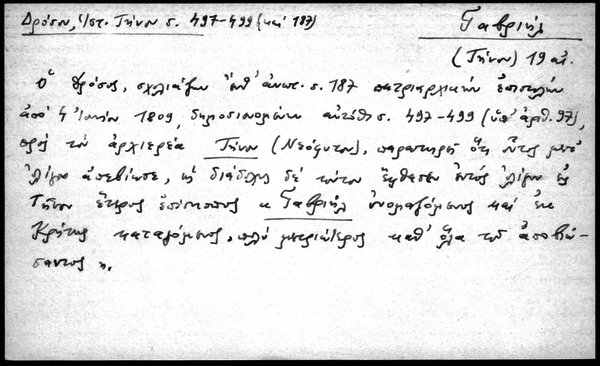 Δρόσου, Ἱστ. Τήνου σ. 497-499 (καί 187)
Γαβριήλ
(Τήνου) 19 αἰ.
Ὁ Δρόσος, σχολιάζων ἐν σ. 187 πατριαρχικήν ἐπιστολήν
ἀπό 4 Ἰουνίου 1809, δημοσιευομένην αὐτόθι σ. 497-499 (ὑπ' ἀριθ. 97),
πρός τόν ἀρχιερέα Τήνου (Νεόφυτον), παρατηρεῖ ὅτι οὗτος μετ'
ὀλίγον ἀπεβίωσε, "διάδοχος δέ τούτου ἦλθεν ἐντός ὀλίγου εἰς
Τήνον ἕτερος ἐπίσκοπος Γαβριήλ ὀνομαζόμενος καί ἐκ
Κρήτης καταγόμενος, πολύ μετριώτερος καθ' ὅλα τοῦ ἀποβιώ-
σαντος".